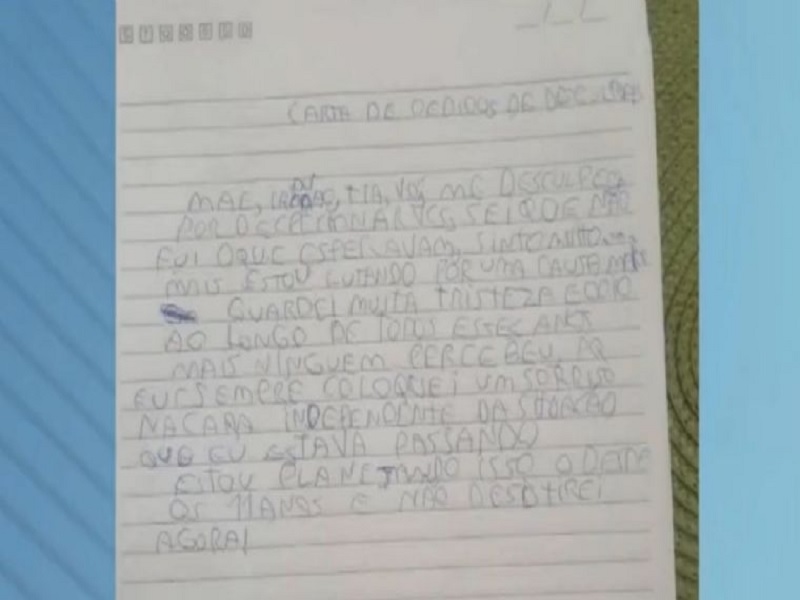 CARTA DE PEDIDOS DE DESCULPAS
MÃE, VOS, TIA, VOS ME DESCULPEM
POR DECEPCIONAR VCS, SEI QUE NÃO
FUI OQUE ESPERAVAM, SINTO MUITO...
MAIS ESTOU LUTANDO POR UMA CAUSA
GUARDEI MUITA TRISTEZA E ODIO
AO LONGO DE TODOS ESSES ANOS
MAIS NINGUEM PERCEBEU, PQ
EU SEMPRE COLOQUEI UM SORRISO
NA CARA INDEPENDENTE DA SITUAÇÃO
QUE EU ESTAVA PASSANDO
ESTOU PLANEJANDO ISSO DESDE
OS 11 ANOS E NÃO DESISTIREI
AGORA!